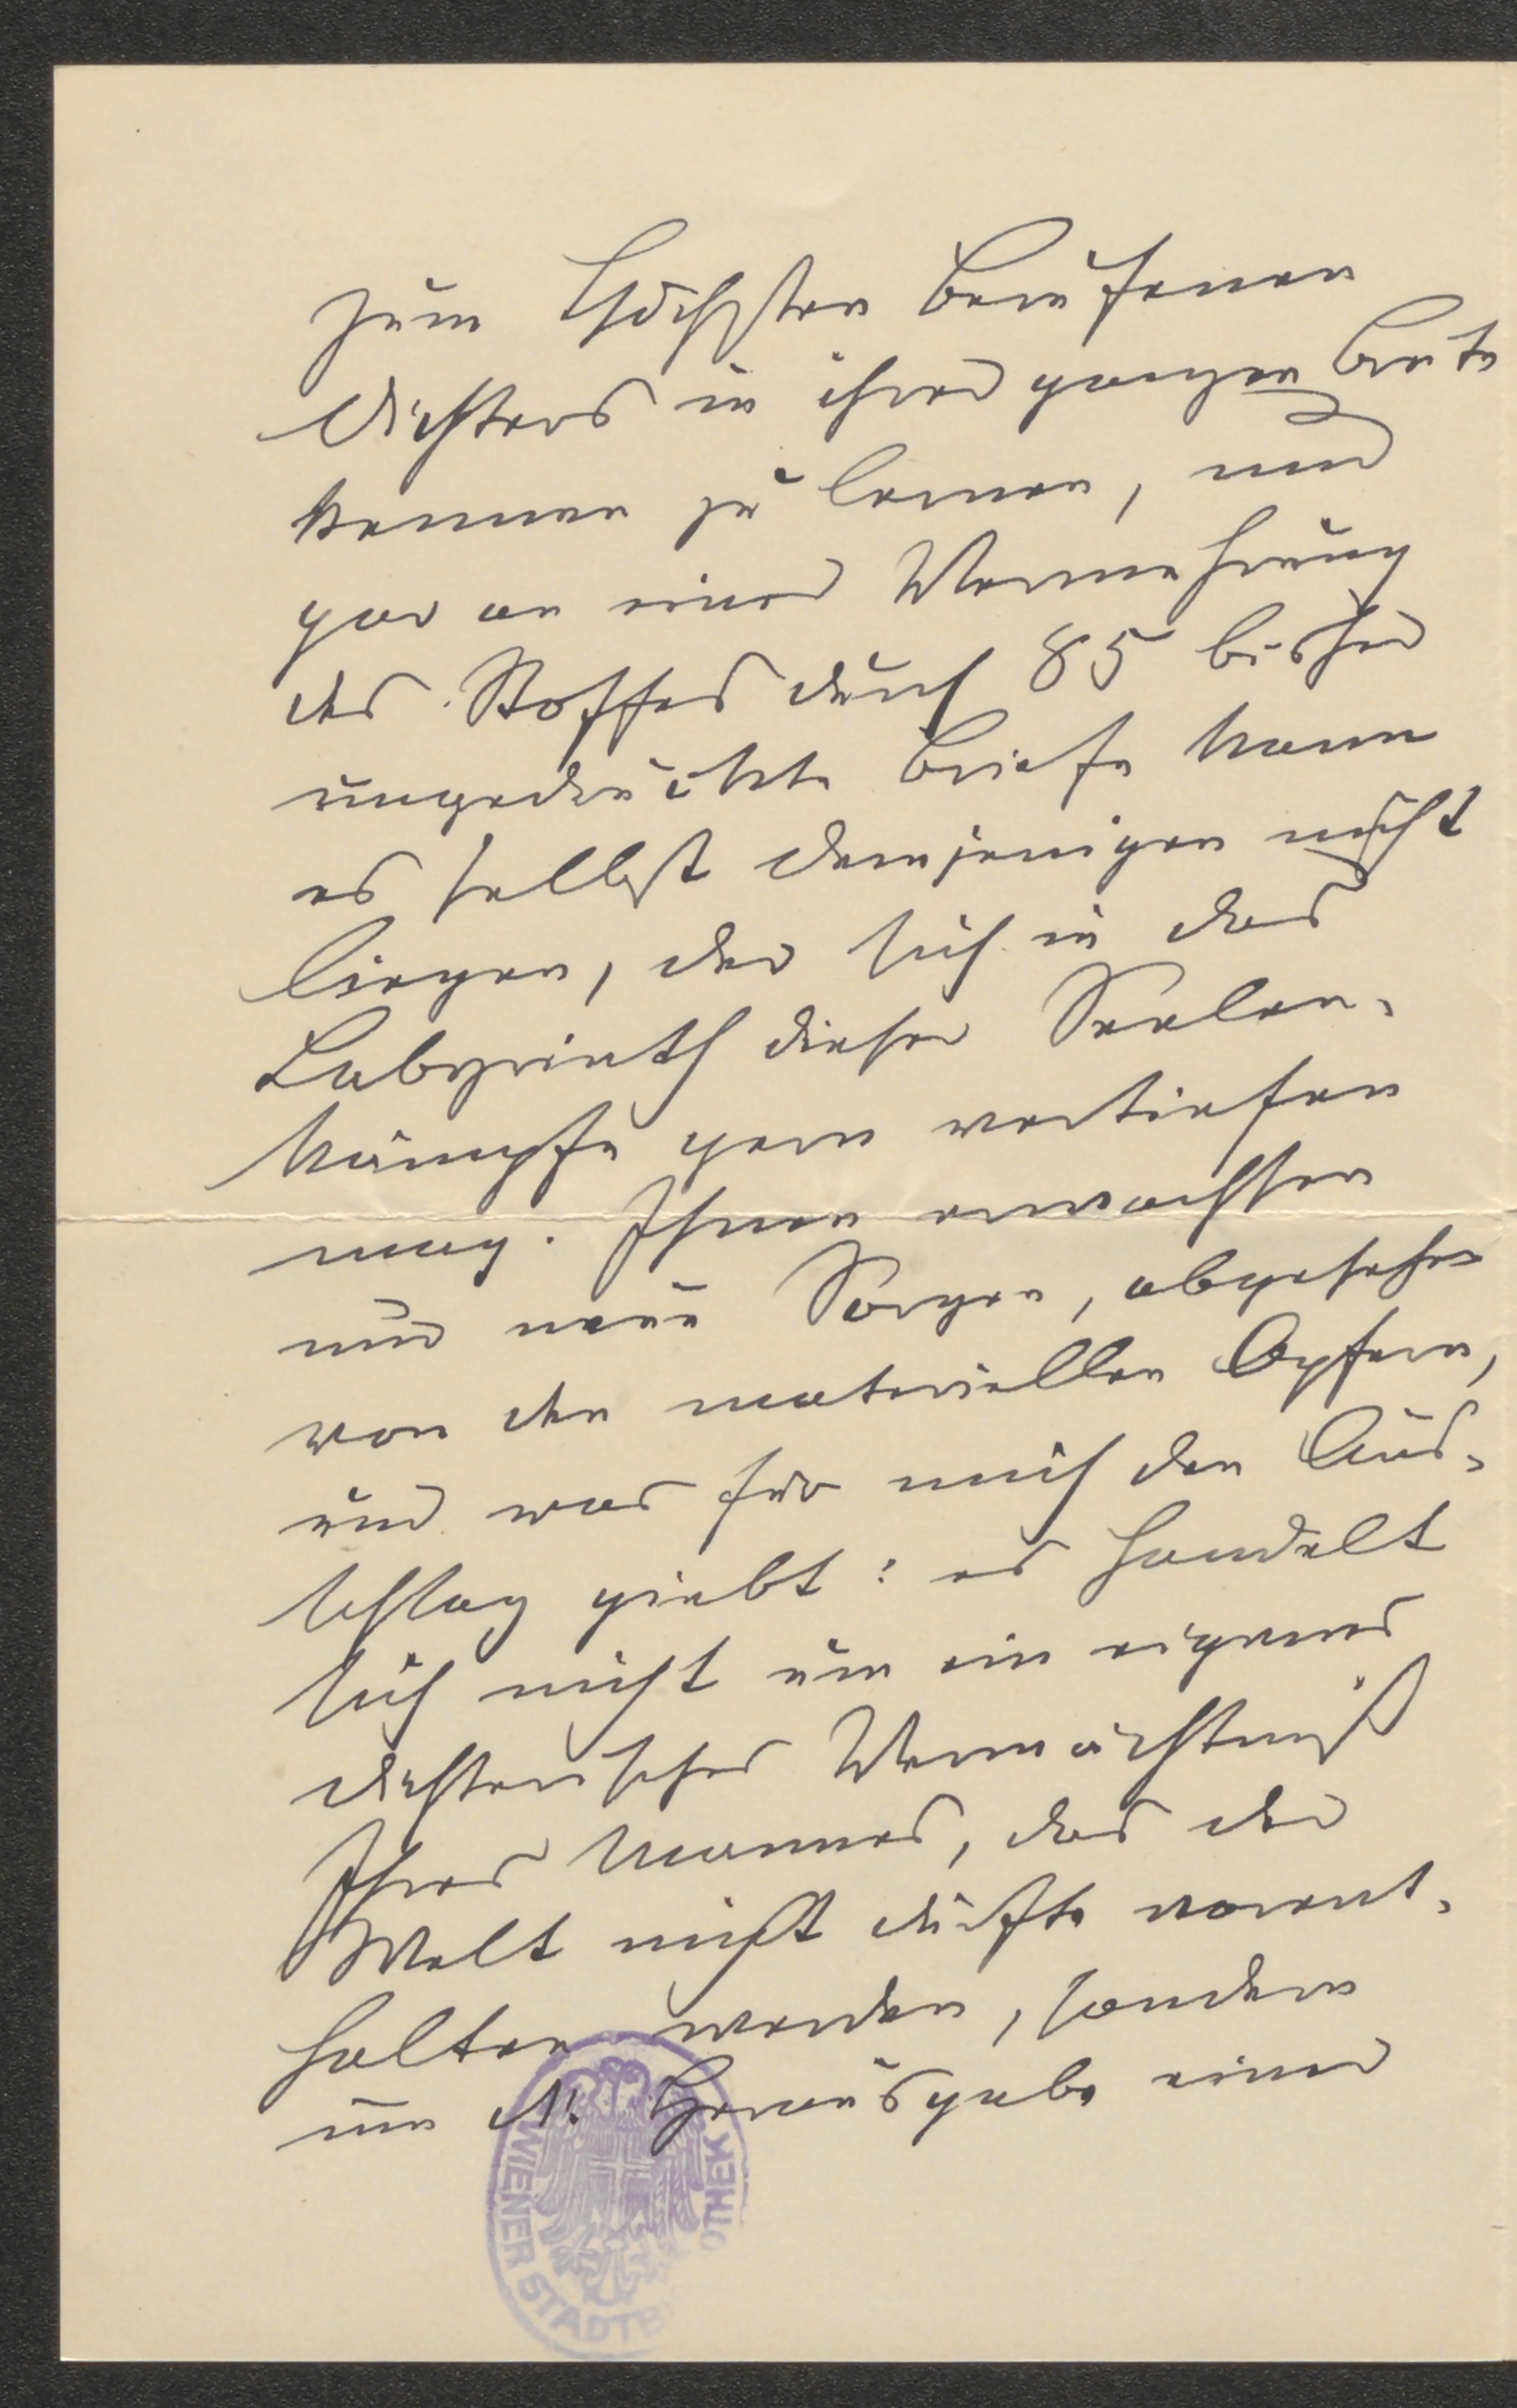 zum Höchsten berufenen
Dichters in ihrer ganzen Breite
kennen zu lernen, und
gar an einer Vermehrung
des Stoffes durch 85 bisher
ungedruckte Briefe kann
es selbst demjenigen nicht
liegen, der sich in das
Labyrinth dieser Seelen-
kämpfe gern vertiefen
mag. Ihnen erwachsen
nur neue Sorgen, abgesehen
von den materiellen Opfern,
und was für mich den Aus-
schlag giebt: es handelt
sich nicht um ein eigenes
dichterisches Vermächtniß
Ihres Mannes, das der
Welt nicht dürfte vorent-
halten werden, sondern
um d. Herausgabe einer
WIENER STADTB OTHEK